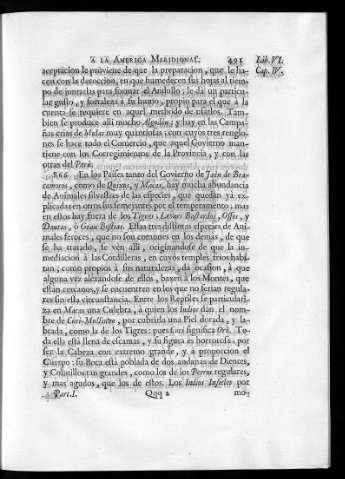 A LA AMERICA MERIDIONAL. 491 Lib. VI.
aceptacion le proviene de que la preparacion, que le ha- Cap. IV.
cen con la decoccion, en que humedecen sus hojas al tiem-
po de juntarlas para formar el Andullo; le dá un particu-
lar gusto, y fortaleza à su humo, proprio para el que à la
cuenta se requiere en aquel methodo de usarlos. Tam-
bien se produce alli mucho Algodòn; y hay en las Campa-
ñas crias de Mulas muy quantiosas; con cuyos tres renglo-
nes se hace todo el Comercio, que aquel Govierno man-
tiene con los Corregimientos de la Provincia, y con las
otras del Perù.
866 En los Países tanto del Govierno de Jaèn de Bra-
camoros, como de Quixos, y Macas, hay mucha abundancia
de Animales silvestres de las especies, que quedan ya ex-
plicadas en otros sus semejantes por el temperamento; mas
en ellos hay fuera de los Tigres, Leones Bastardos, Ossos, y
Dantas, ò Gran Bestias. Estas tres distintas especies de Ani-
males feroces, que no son comunes en los demàs, de que
se ha tratado, se vèn alli, originandose de que la in-
mediacion à las Cordilleras, en cuyos temples frios habi-
tan; como propios à sus naturalezas, dà ocasion, à que
alguna vez alexandose de ellos, baxen à los Montes, que
estàn cercanos, y se encuentren en los que no serìan regula-
res sin esta circunstancia. Entre los Reptiles se particulari-
za en Macas una Culebra, à quien los Indios dàn el nom-
bre de Curi-Mullinvo, por cubrirla una Piel dorada, y la-
beada, como la de los Tigres: pues Curi significa Oro. To-
da ella està llena de escamas, y su figura es horrorosa; por
ser la Cabeza con extremo grande, y à proporcion el
Cuerpo: su Boca està poblada de dos andanas de Dientes,
y Colmillos tan grandes, como los de los Perros regulares,
y mas agudos, que los de estos. Los Indios Infieles por
Part. I. Qqq 2 mo-